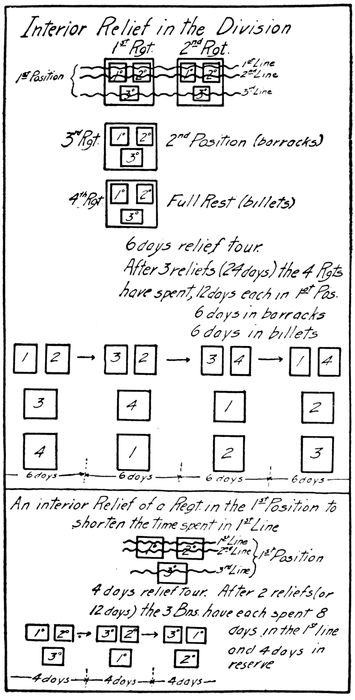 Interior Relief in the Division
1st Rgt. 2nd Rgt.
1st Position
1° 2° 1° 2°
3° 3°
1st Line
2nd Line
3rd Line
3rd Rgt.
1° 2°
3°
2nd Position (barracks)
4th Rgt
1° 2°
3°
Full Rest (billets)
6 days relief tour.
After 3 reliefs (24 days) the 4 Rgts
have spent, 12 days each in 1st Pos.
6 days in barracks
6 days in billets
1 2 3 2 3 4 1 4
3 4 1 2
4 1 2 3
6 days 6 days 6 days 6 days
An interior Relief of a Regt in the 1st Position to
shorten the time spent in 1st Line
1° 2°
3°
1st Line
2nd Line
3rd Line
1st Position
4 days relief tour. After 2 reliefs (or
12 days) the 3 Bns. have each spent 8
days, in the 1st line
and 4 days in
reserve
1° 2° 3° 2° 3° 1°
3° 1° 2°
4 days 4 days 4 days